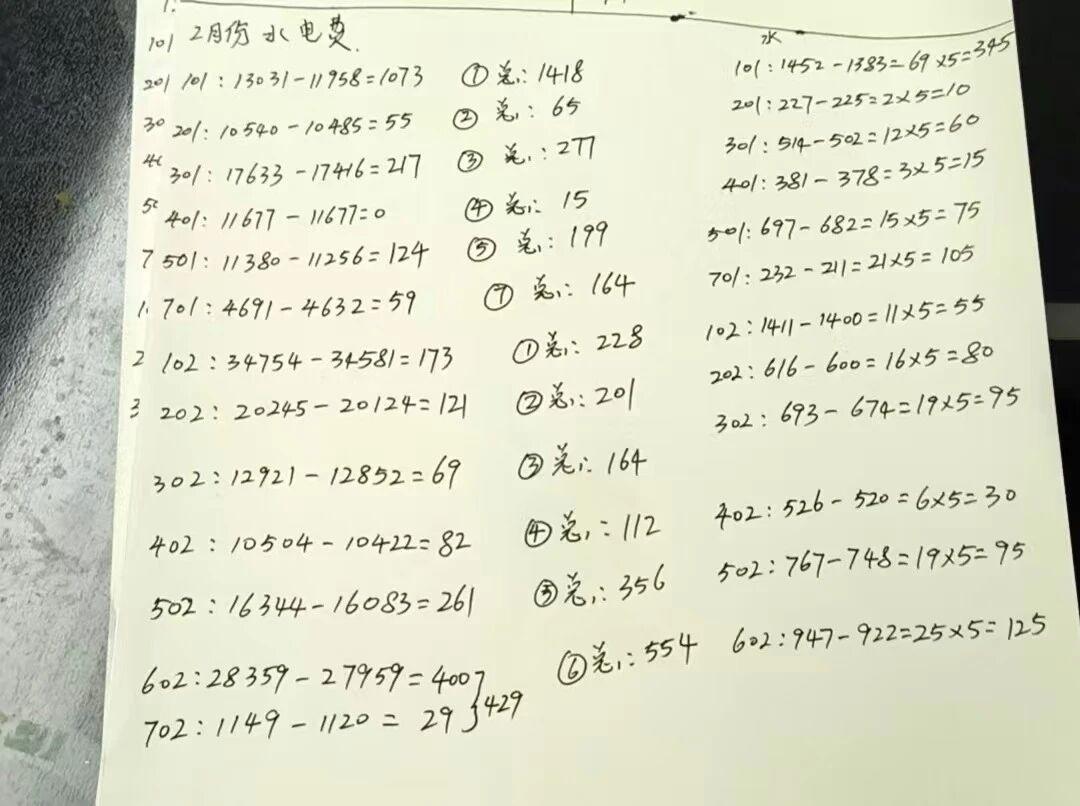 101 2月份 水电费.
水
201 101: 13031-11958=1073 ①总: 1418 101: 1452-1383=69×5=345
30 201: 10540-10485=55 ②总: 65 201: 227-225=2×5=10
40 301: 17633-17416=217 ③总: 277 301: 514-502=12×5=60
50 401: 11677-11677=0 ④总: 15 401: 381-378=3×5=15
7 501: 11380-11256=124 ⑤总: 199 501: 697-682=15×5=75
1 701: 4691-4632=59 ⑦总: 164 701: 232-211=21×5=105
2 102: 34754-34581=173 ①总: 228 102: 1411-1400=11×5=55
3 202: 20245-20124=121 ②总: 201 202: 616-600=16×5=80
302: 12921-12852=69 ③总: 164 302: 693-674=19×5=95
402: 10504-10422=82 ④总: 112 402: 526-520=6×5=30
502: 16344-16083=261 ⑤总: 356 502: 767-748=19×5=95
602: 28359-27959=400 ⑥总: 554 602: 947-922=25×5=125
702: 1149-1120=29 }429